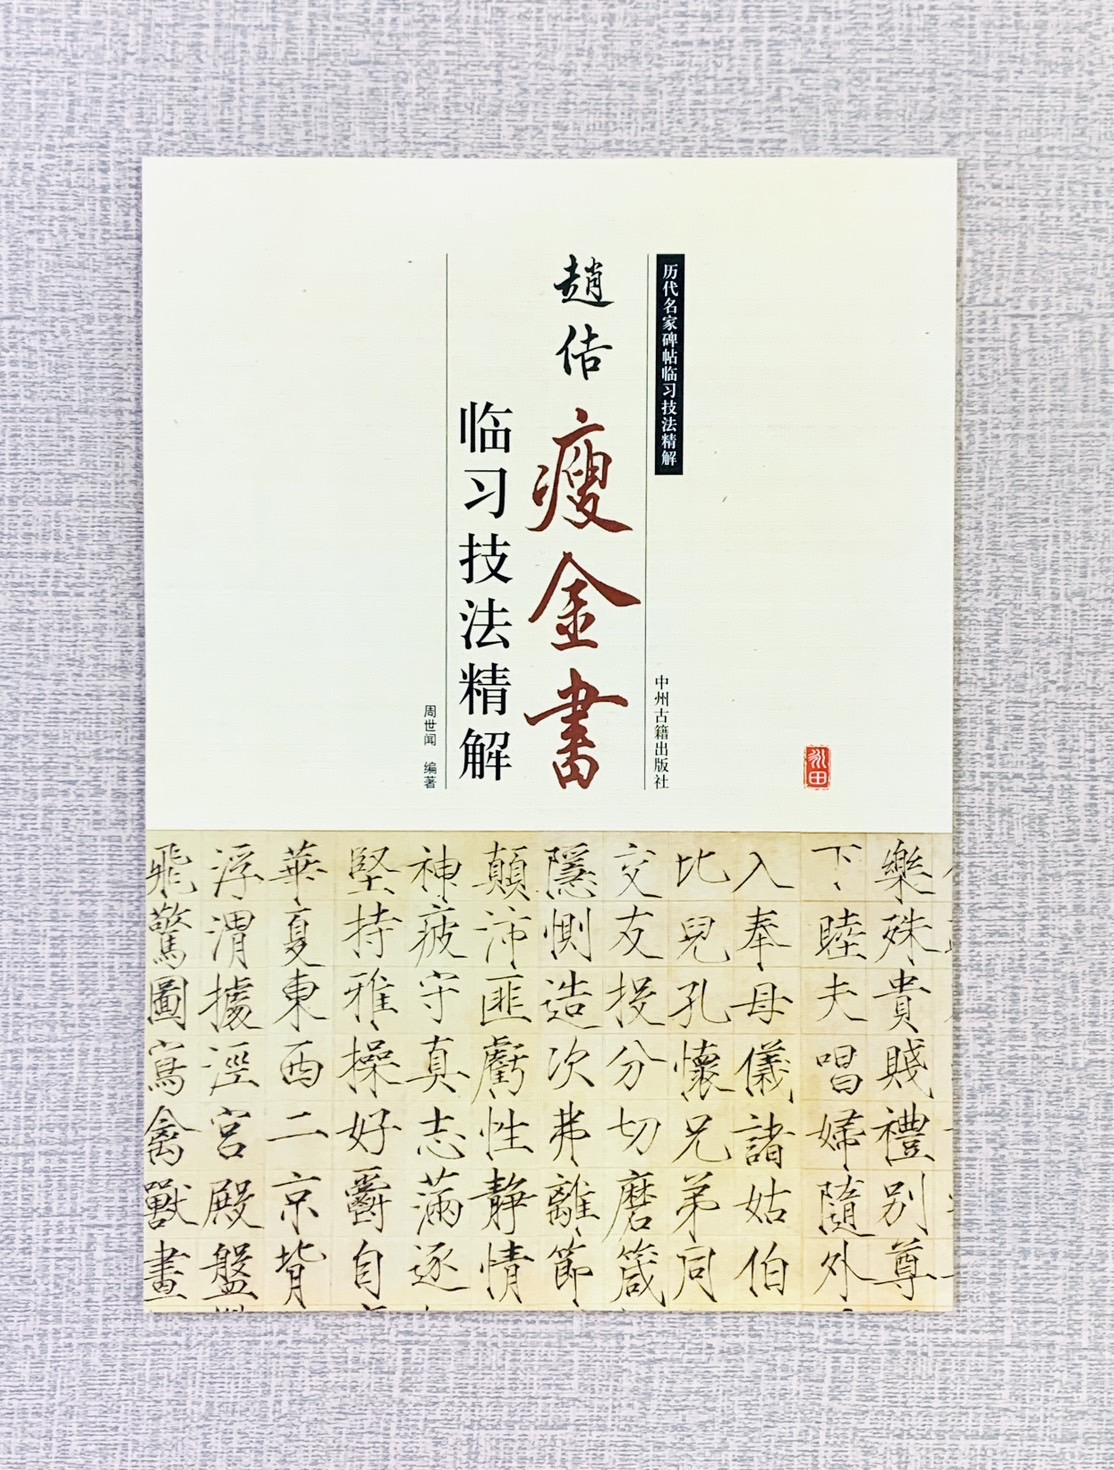 历代名家碑帖临习技法精解
中州古籍出版社
趙佶瘦金書
临习技法精解
周世闻 编著
樂殊貴賤禮別尊
下睦夫唱婦隨外
入奉母儀諸姑伯
比兒孔懷兄弟同
交友投分切磨箴
隱惻造次弗離節
顛沛匪虧性靜情
神疲守真志滿逐
堅持雅操好爵自
華夏東西二京背
浮渭據涇宮殿盤
飛驚圖寫禽獸畫